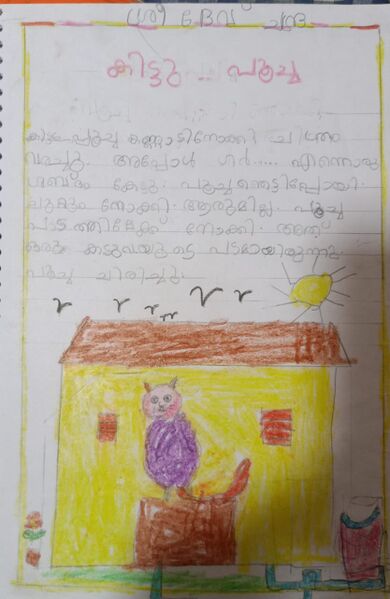 ശ്രീ ദേവ് ചന്ദ്ര
കിട്ടു .. പൂച്ച
കിട്ടു പൂച്ച കണ്ണാടിനോക്കി ചിത്രം
വരച്ചു. അപ്പോൾ ഗർ..... എന്നൊരു
ശബ്ദം കേട്ടു. പൂച്ച ഞെട്ടിപ്പോയി.
ചുറ്റും നോക്കി. ആരുമില്ല. പൂച്ച
പടത്തിലേക്ക് നോക്കി. അത്
ഒരു കടുവയുടെ പടമായിരുന്നു.
പൂച്ച ചിരിച്ചു.